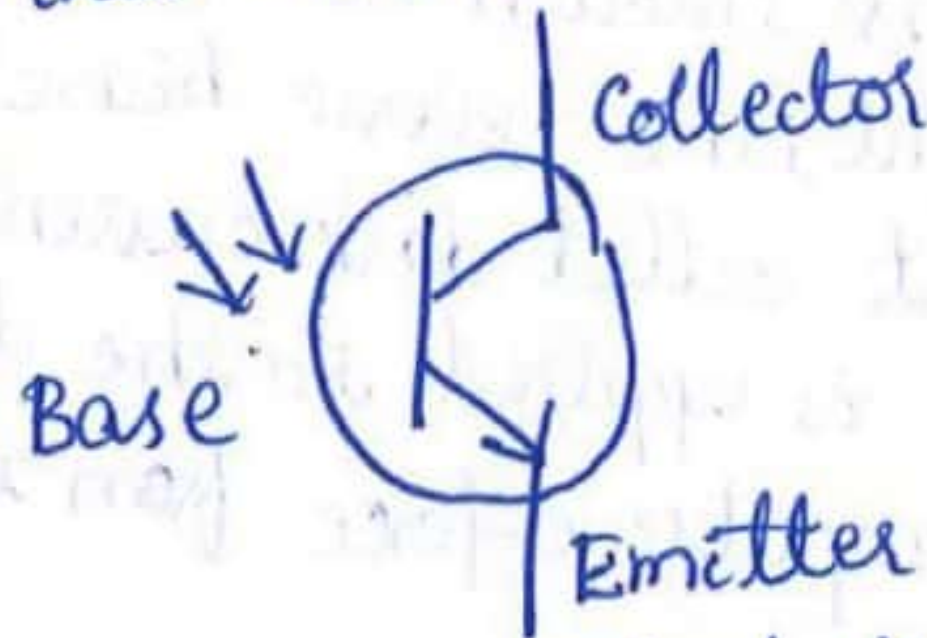 Collector
Base
Emitter